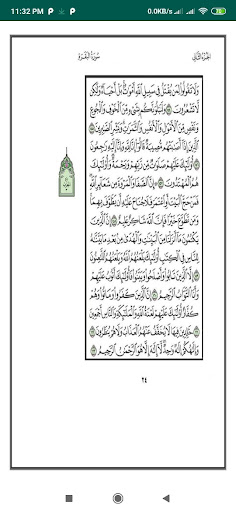 11:32 PM
0.0KB/s
الجزء الثاني
سورة البقرة
وَلَا تَقُولُوا۟ لِمَن يُقْتَلُ فِى سَبِيلِ ٱللَّهِ أَمْوَٰتٌۢ بَلْ أَحْيَآءٌ وَلَٰكِن
لَّا تَشْعُرُونَ ١٥٤ وَلَنَبْلُوَنَّكُم بِشَىْءٍ مِّنَ ٱلْخَوْفِ وَٱلْجُوعِ
وَنَقْصٍ مِّنَ ٱلْأَمْوَٰلِ وَٱلْأَنفُسِ وَٱلثَّمَرَٰتِ وَبَشِّرِ ٱلصَّٰبِرِينَ ١٥٥
ٱلَّذِينَ إِذَآ أَصَٰبَتْهُم مُّصِيبَةٌ قَالُوٓا۟ إِنَّا لِلَّهِ وَإِنَّآ إِلَيْهِ رَٰجِعُونَ
١٥٦ أُو۟لَٰٓئِكَ عَلَيْهِمْ صَلَوَٰتٌ مِّن رَّبِّهِمْ وَرَحْمَةٌ وَأُو۟لَٰٓئِكَ
هُمُ ٱلْمُهْتَدُونَ ١٥٧ ۞ إِنَّ ٱلصَّفَا وَٱلْمَرْوَةَ مِن شَعَآئِرِ ٱللَّهِ
فَمَنْ حَجَّ ٱلْبَيْتَ أَوِ ٱعْتَمَرَ فَلَا جُنَاحَ عَلَيْهِ أَن يَطَّوَّفَ بِهِمَا
وَمَن تَطَوَّعَ خَيْرًا فَإِنَّ ٱللَّهَ شَاكِرٌ عَلِيمٌ ١٥٨ إِنَّ ٱلَّذِينَ
يَكْتُمُونَ مَآ أَنزَلْنَا مِنَ ٱلْبَيِّنَٰتِ وَٱلْهُدَىٰ مِنۢ بَعْدِ مَا بَيَّنَّٰهُ
لِلنَّاسِ فِى ٱلْكِتَٰبِ أُو۟لَٰٓئِكَ يَلْعَنُهُمُ ٱللَّهُ وَيَلْعَنُهُمُ ٱللَّٰعِنُونَ
١٥٩ إِلَّا ٱلَّذِينَ تَابُوا۟ وَأَصْلَحُوا۟ وَبَيَّنُوا۟ فَأُو۟لَٰٓئِكَ أَتُوبُ عَلَيْهِمْ
وَأَنَا ٱلتَّوَّابُ ٱلرَّحِيمُ ١٦٠ إِنَّ ٱلَّذِينَ كَفَرُوا۟ وَمَاتُوا۟ وَهُمْ
كُفَّارٌ أُو۟لَٰٓئِكَ عَلَيْهِمْ لَعْنَةُ ٱللَّهِ وَٱلْمَلَٰٓئِكَةِ وَٱلنَّاسِ أَجْمَعِينَ
١٦١ خَٰلِدِينَ فِيهَا لَا يُخَفَّفُ عَنْهُمُ ٱلْعَذَابُ وَلَا هُمْ يُنظَرُونَ ١٦٢
وَإِلَٰهُكُمْ إِلَٰهٌ وَٰحِدٌ لَّآ إِلَٰهَ إِلَّا هُوَ ٱلرَّحْمَٰنُ ٱلرَّحِيمُ ١٦٣
٢٤